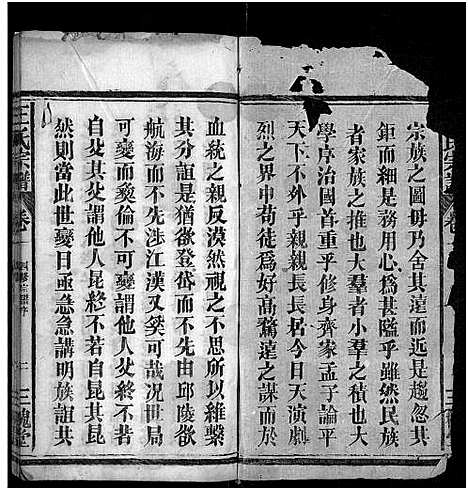 宗族之圖毋乃舍其遠而近是趨忽其
鉅而細是務用心爲甚隘乎雖然民族
者家族之推也大羣者小羣之積也大
學序治國首重乎修身齊家孟子論平
天下不外乎親親長長居今日天演劇
烈之界中苟徒爲好高騖遠之謀而於
血統之親反漠然視之不思所以維繫
其分誼是猶欲登岱而不先邱陵欲
航海而不先涉江漢又奚可哉况世局
可變而彝倫不可變也他人有父不若
自父其父謂他人昆終不若自昆其昆
然則當此世變日亟急急講明族誼其
王氏宗譜 卷一
三槐堂
氏宗譜 卷